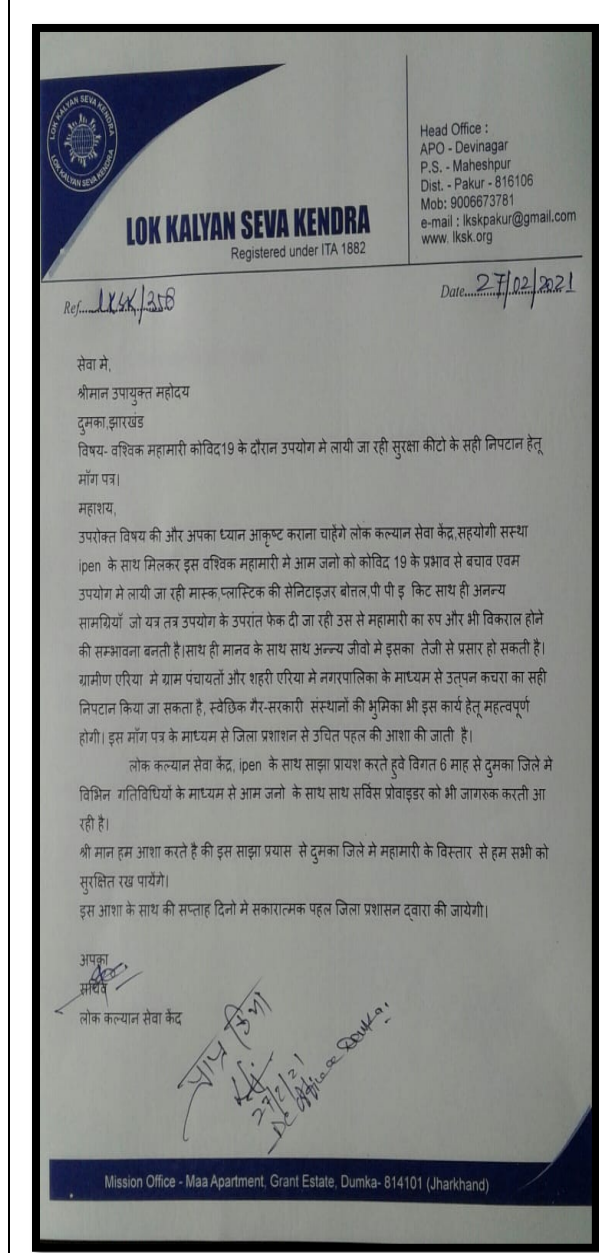 LOK KALYAN SEVA KENDRA
LOK KALYAN SEVA KENDRA
LOK KALYAN SEVA KENDRA
Registered under ITA 1882
Head Office :
APO - Devinagar
P.S. - Maheshpur
Dist. - Pakur - 816106
Mob: 9006673781
e-mail : lkskpakur@gmail.com
www. lksk.org
Ref. LKSK/358
Date 27/02/2021
सेवा मे,
श्रीमान उपायुक्त महोदय
दुमका,झारखंड
विषय- वश्विक महामारी कोविद19 के दौरान उपयोग मे लायी जा रही सुरक्षा कीटो के सही निपटान हेतू
माँग पत्र।
महाशय,
उपरोक्त विषय की और अपका ध्यान आकृष्ट कराना चाहेंगे लोक कल्याण सेवा केंद्र,सहयोगी सस्था
ipen के साथ मिलकर इस वश्विक महामारी मे आम जनो को कोविद 19 के प्रभाव से बचाव एवम
उपयोग मे लायी जा रही मास्क,प्लास्टिक की सेनिटाइजर बोत्तल,पी पी इ किट साथ ही अनन्य
सामग्रियाँ जो यत्र तत्र उपयोग के उपरांत फेक दी जा रही उस से महामारी का रुप और भी विकराल होने
की सम्भावना बनती है।साथ ही मानव के साथ साथ अन्न्य जीवो मे इसका तेजी से प्रसार हो सकती है।
ग्रामीण एरिया मे ग्राम पंचायतों और शहरी एरिया मे नगरपालिका के माध्यम से उत्पन कचरा का सही
निपटान किया जा सकता है, स्वेछिक गैर-सरकारी संस्थानों की भुमिका भी इस कार्य हेतू महत्वपूर्ण
होगी। इस माँग पत्र के माध्यम से जिला प्रशाशन से उचित पहल की आशा की जाती है।
लोक कल्याण सेवा केंद्र, ipen के साथ साझा प्रायश करते हुवे विगत 6 माह से दुमका जिले मे
विभिन गतिविधियों के माध्यम से आम जनो के साथ साथ सर्विस प्रोवाइडर को भी जागरुक करती आ
रही है।
श्री मान हम आशा करते है की इस साझा प्रयास से दुमका जिले मे महामारी के विस्तार से हम सभी को
सुरक्षित रख पायेंगे।
इस आशा के साथ की सप्ताह दिनो मे सकारात्मक पहल जिला प्रशासन द्वारा की जायेगी।
अपका
सचिव
लोक कल्यान सेवा केंद
प्राप्त किया
27/2/21
DC office Dumka.
Mission Office - Maa Apartment, Grant Estate, Dumka- 814101 (Jharkhand)